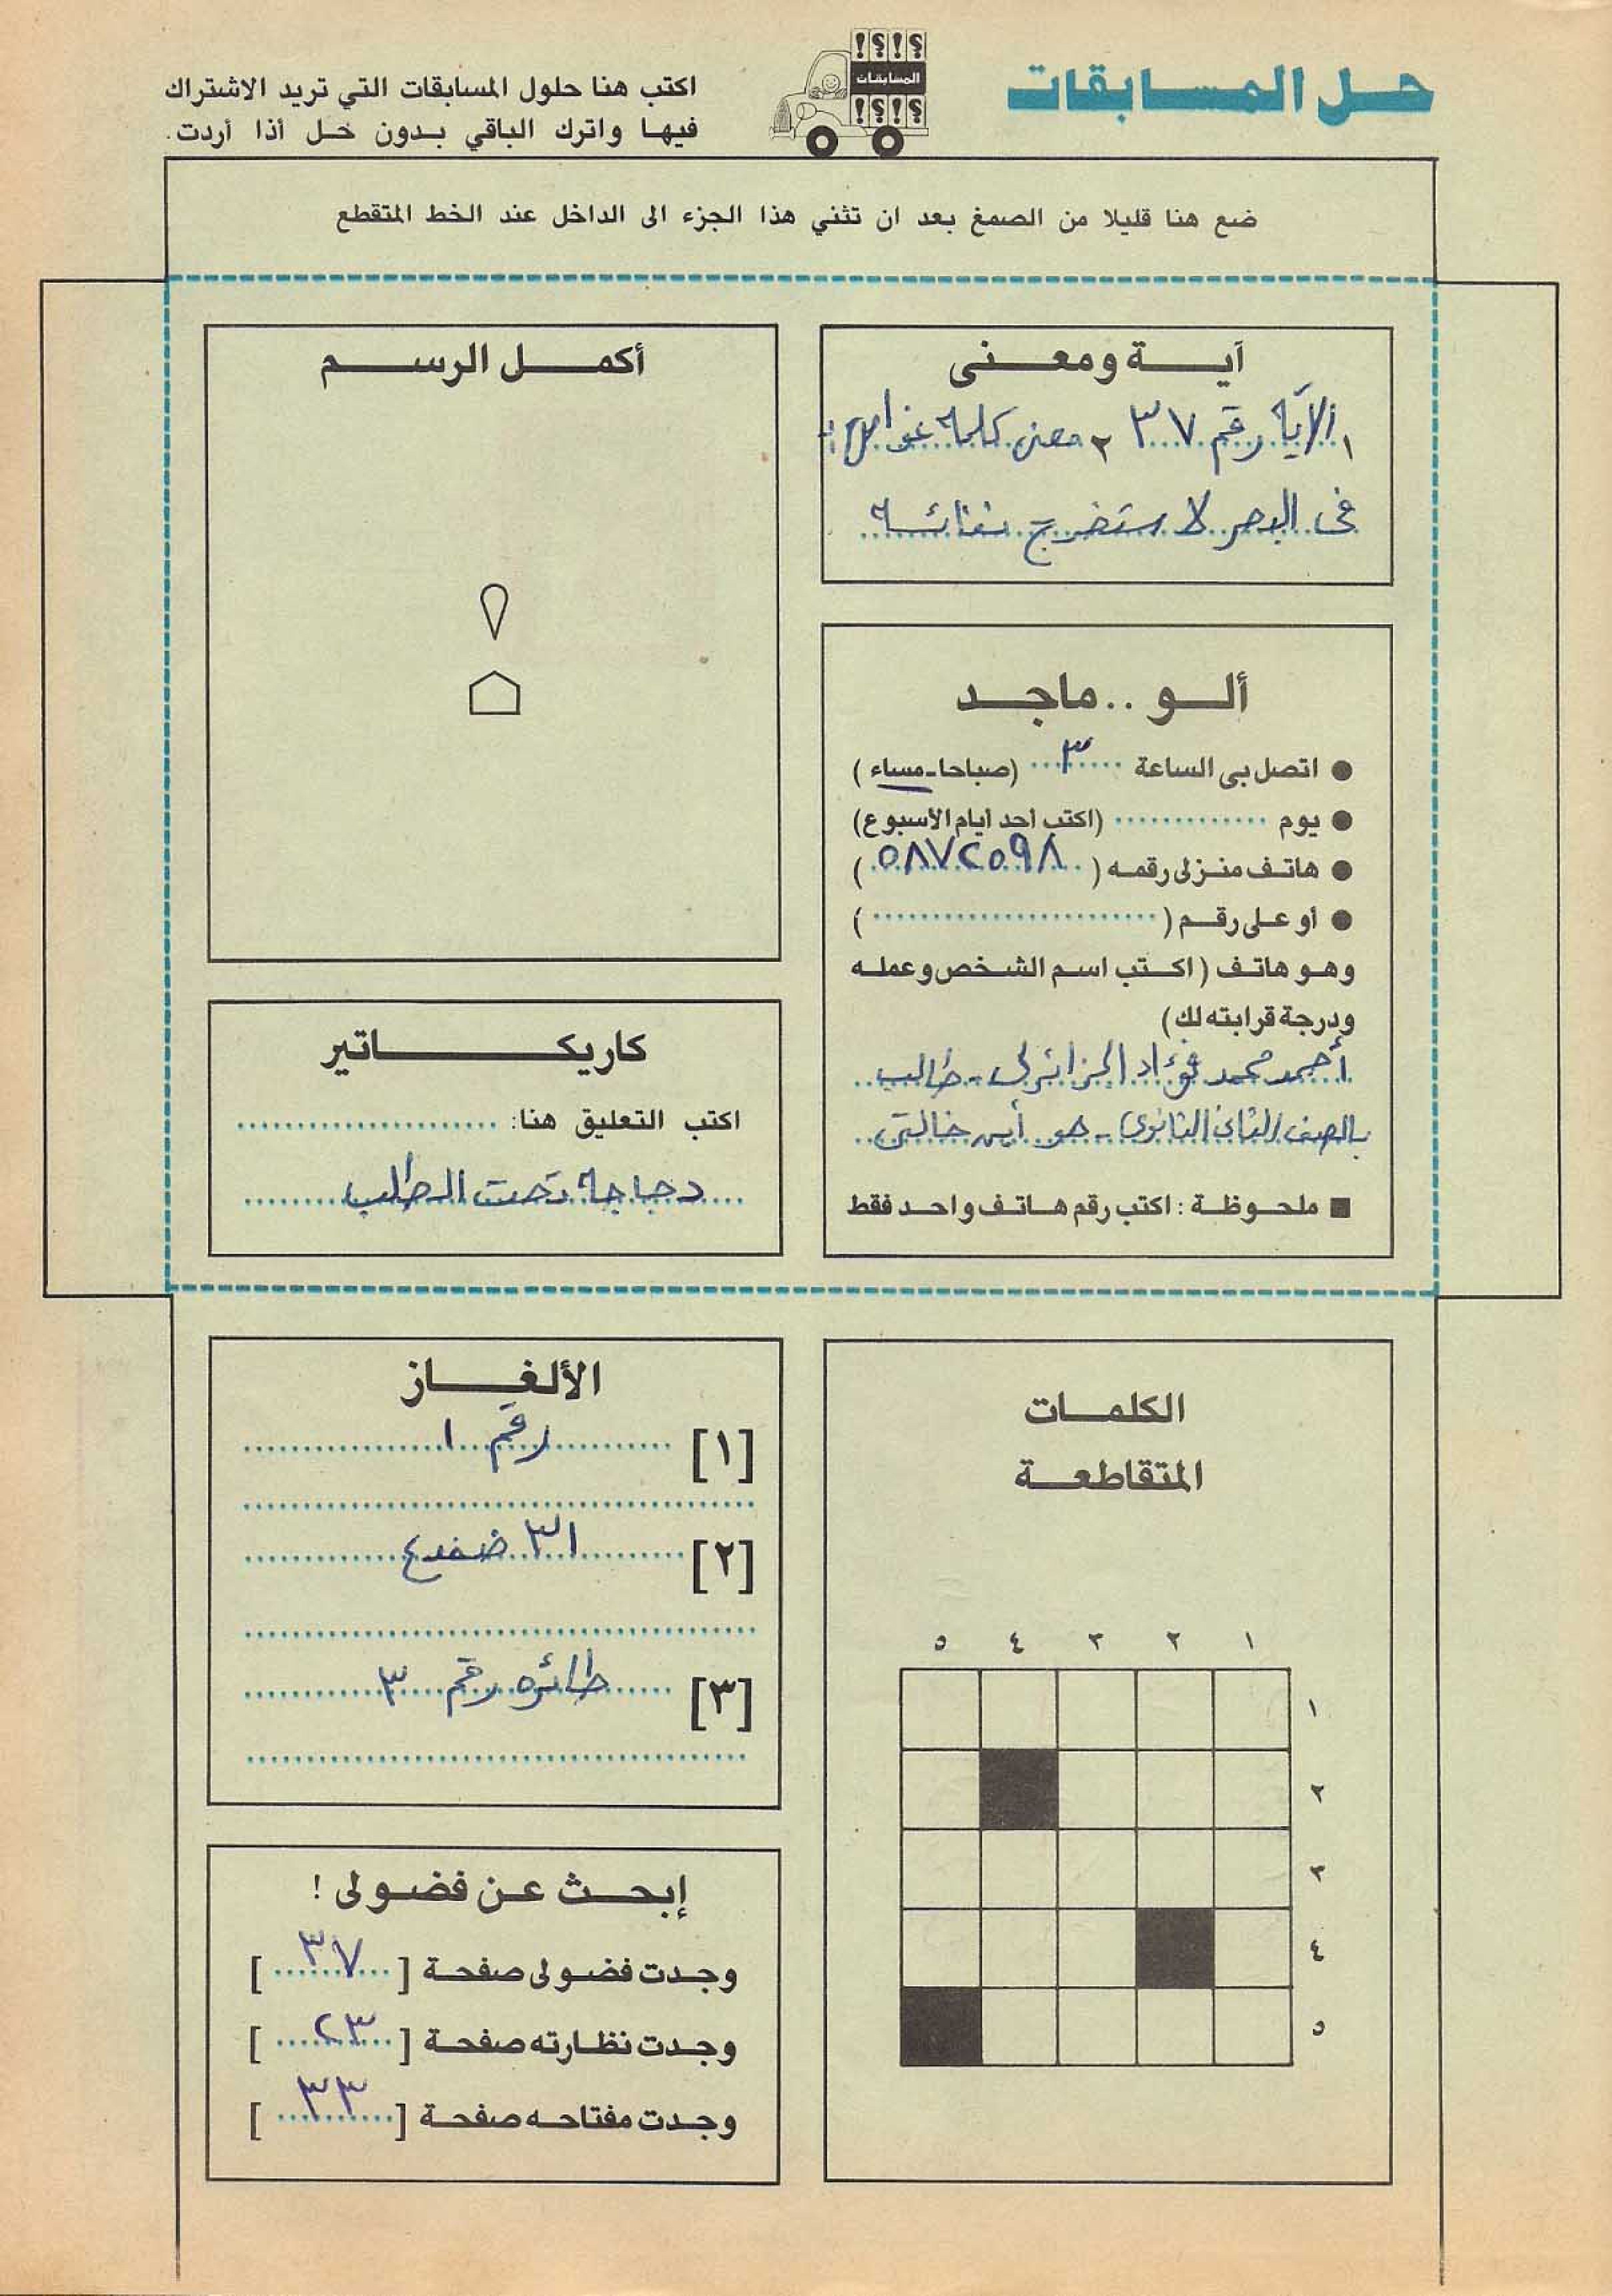 حل المسابقات
؟!؟!
المسابقات
؟!؟!
اكتب هنا حلول المسابقات التي تريد الاشتراك
فيها واترك الباقي بدون حل أذا أردت.
ضع هنا قليلا من الصمغ بعد ان تثني هذا الجزء الى الداخل عند الخط المتقطع
آية ومعنى
١ الآية رقم ٣٧ ٢ معنى كلمة غواص:-
فى البحر لاستخرج نفائسه
ألو .. ماجد
● اتصل بى الساعة ٣ (صباحا - مساء)
● يوم ............. (اكتب أحد أيام الأسبوع)
● هاتف منزلى رقمه (٥٨٧٢٥٩٨)
● أو على رقم (........................)
وهو هاتف (اكتب اسم الشخص وعمله
ودرجة قرابته لك)
أحمد محمد فؤاد الجزائرلى - طالب
بالصف الثانى الثانوى - هو أبن خالتى
■ ملحوظة : اكتب رقم هاتف واحد فقط
أكمل الرسم
كاريكاتير
اكتب التعليق هنا: ......................
دجاجة تحت الطلب
الكلمات
المتقاطعة
١ ٢ ٣ ٤ ٥
١
٢
٣
٤
٥
الألغاز
[١] رقم ١
[٢] ٣١ ضفدع
[٣] طائره رقم ٣
إبحث عن فضولى !
وجدت فضولى صفحة [٣٧]
وجدت نظارته صفحة [٢٣]
وجدت مفتاحه صفحة [٣٣]